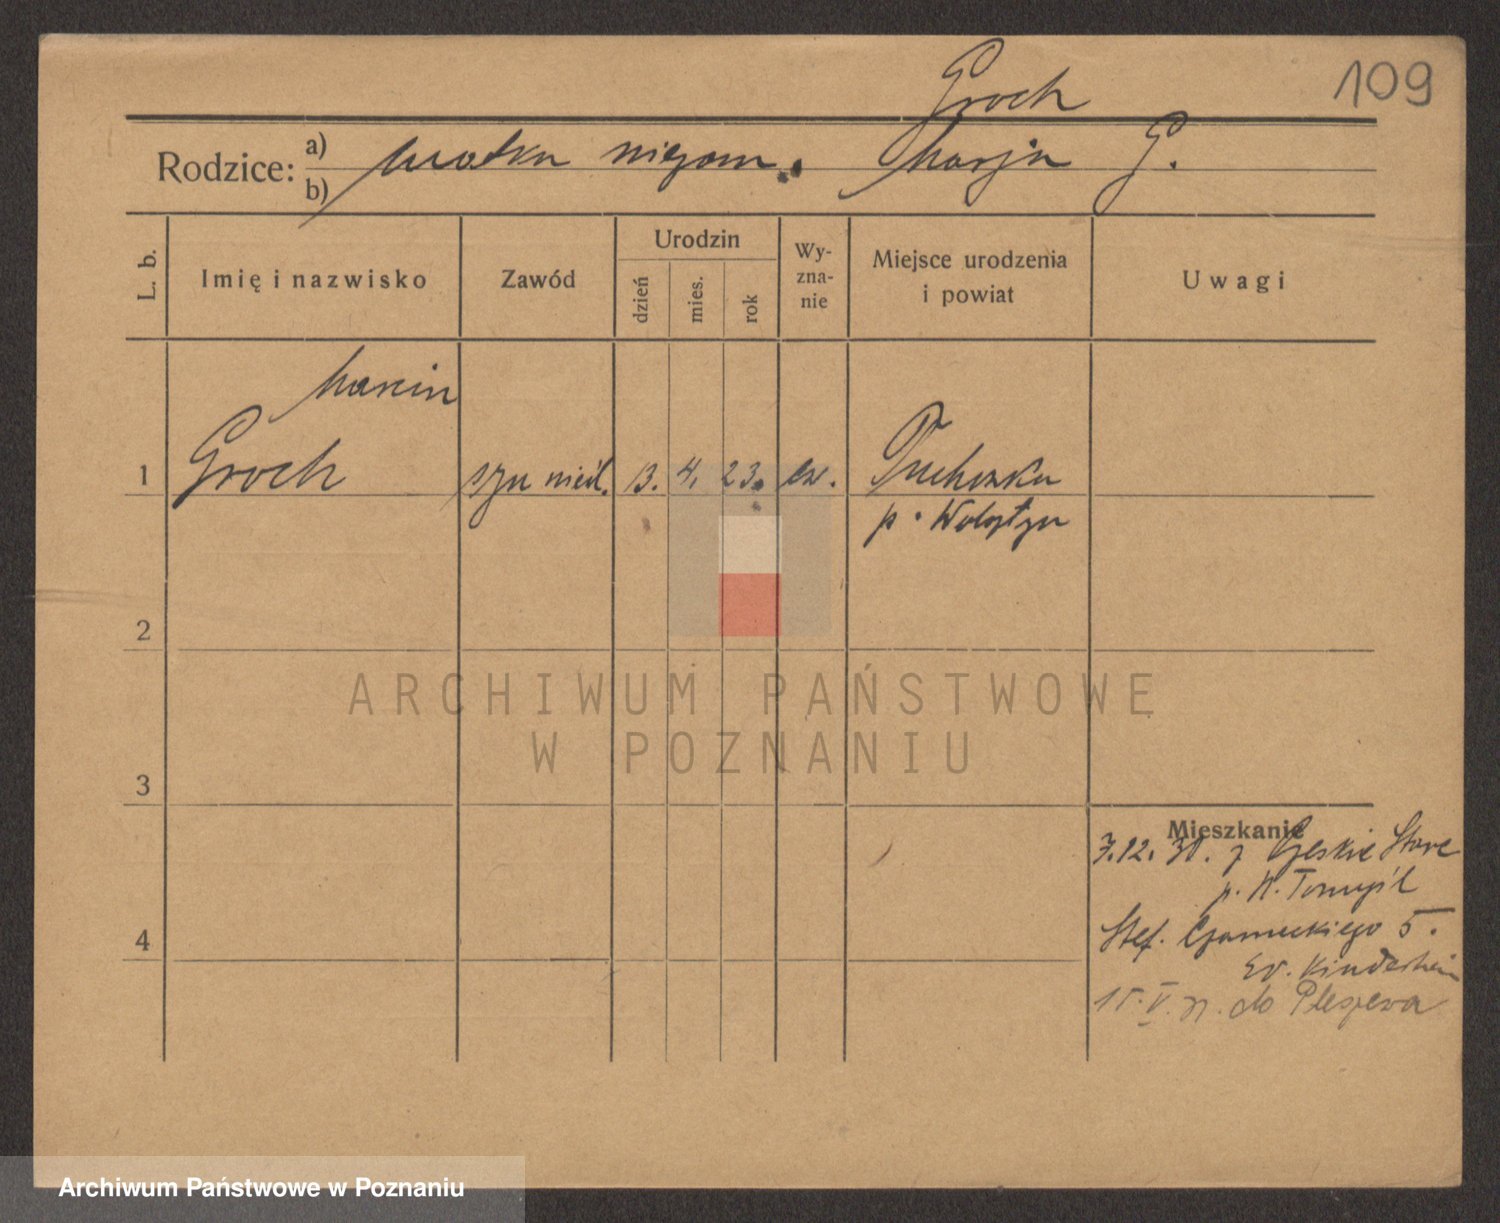 109
Groch
Rodzice: a) matka niezam. Marja G.
b)
L. b.
Imię i nazwisko
Zawód
Urodzin
dzień
mies.
rok
Wy-
zna-
nie
Miejsce urodzenia
i powiat
Uwagi
Marcin
1 Groch syn nieśl. 13. 4. 23. ew.
p. Wolsztyn
2
3
4
Mieszkanie
7.12. 31. z Stare
p. N. Tomyśl
Stef. Czarneckiego 5.
Ev. Kinderheim
15.V. do Pleszewa
ARCHIWUM PAŃSTWOWE
W POZNANIU
Archiwum Państwowe w Poznaniu